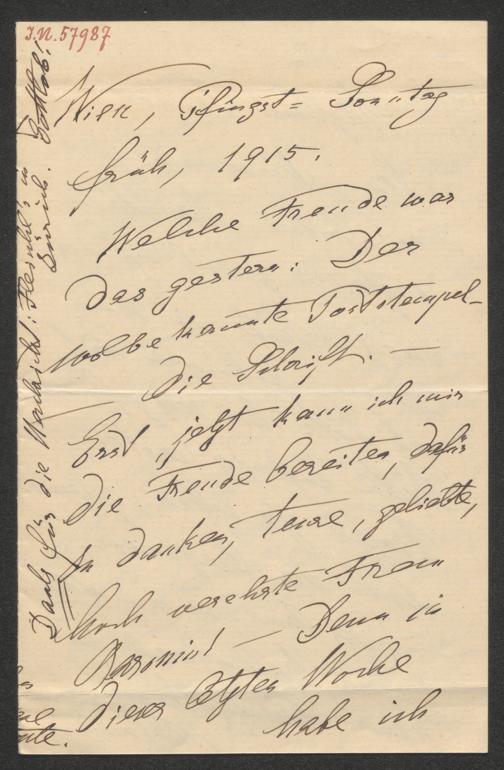 I.N. 57987
Wien, Pfingst= Sonntag
früh, 1915.
Welche Freude war
das gestern: Der
wolbekannte Poststempel –
die Schrift. —
Erst jetzt kann ich mir
die Freude bereiten, dafür
zu danken, teure, geliebte,
hoch verehrte Frau
Baronin! — Denn in
dieser letzten Woche
habe ich
Dank für die Nachricht: in
Zürich. Gottlob!